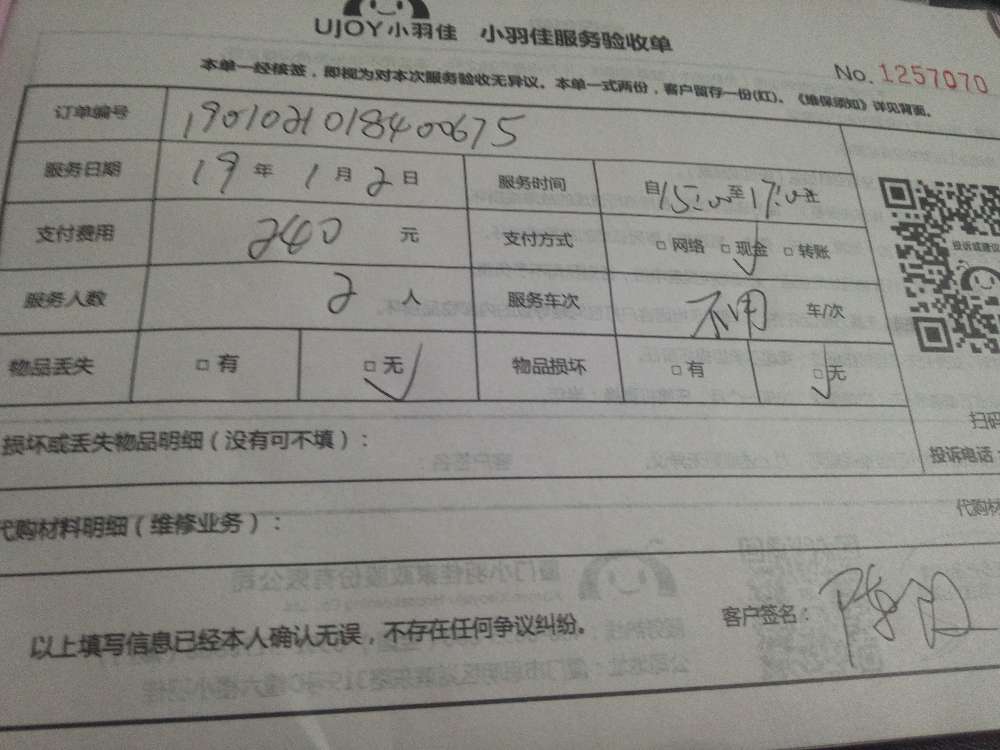 UJOY小羽佳 小羽佳服务验收单
No. 1257070
本单一经核签，即视为对本次服务验收无异议。本单一式两份，客户留存一份(红)。《维保须知》详见背面。
订单编号 1901021018400675
服务日期 19 年 1 月 2 日 服务时间 自15:00至17:00止
支付费用 240 元 支付方式 □ 网络 □ 现金 □ 转账
投诉或建议
服务人数 2 人 服务车次 不用 车/次
物品丢失 □ 有 □ 无 物品损坏 □ 有 □ 无
扫码
损坏或丢失物品明细（没有可不填）：
投诉电话：
代购材料明细（维修业务）：
代购材
以上填写信息已经本人确认无误，不存在任何争议纠纷。 客户签名：